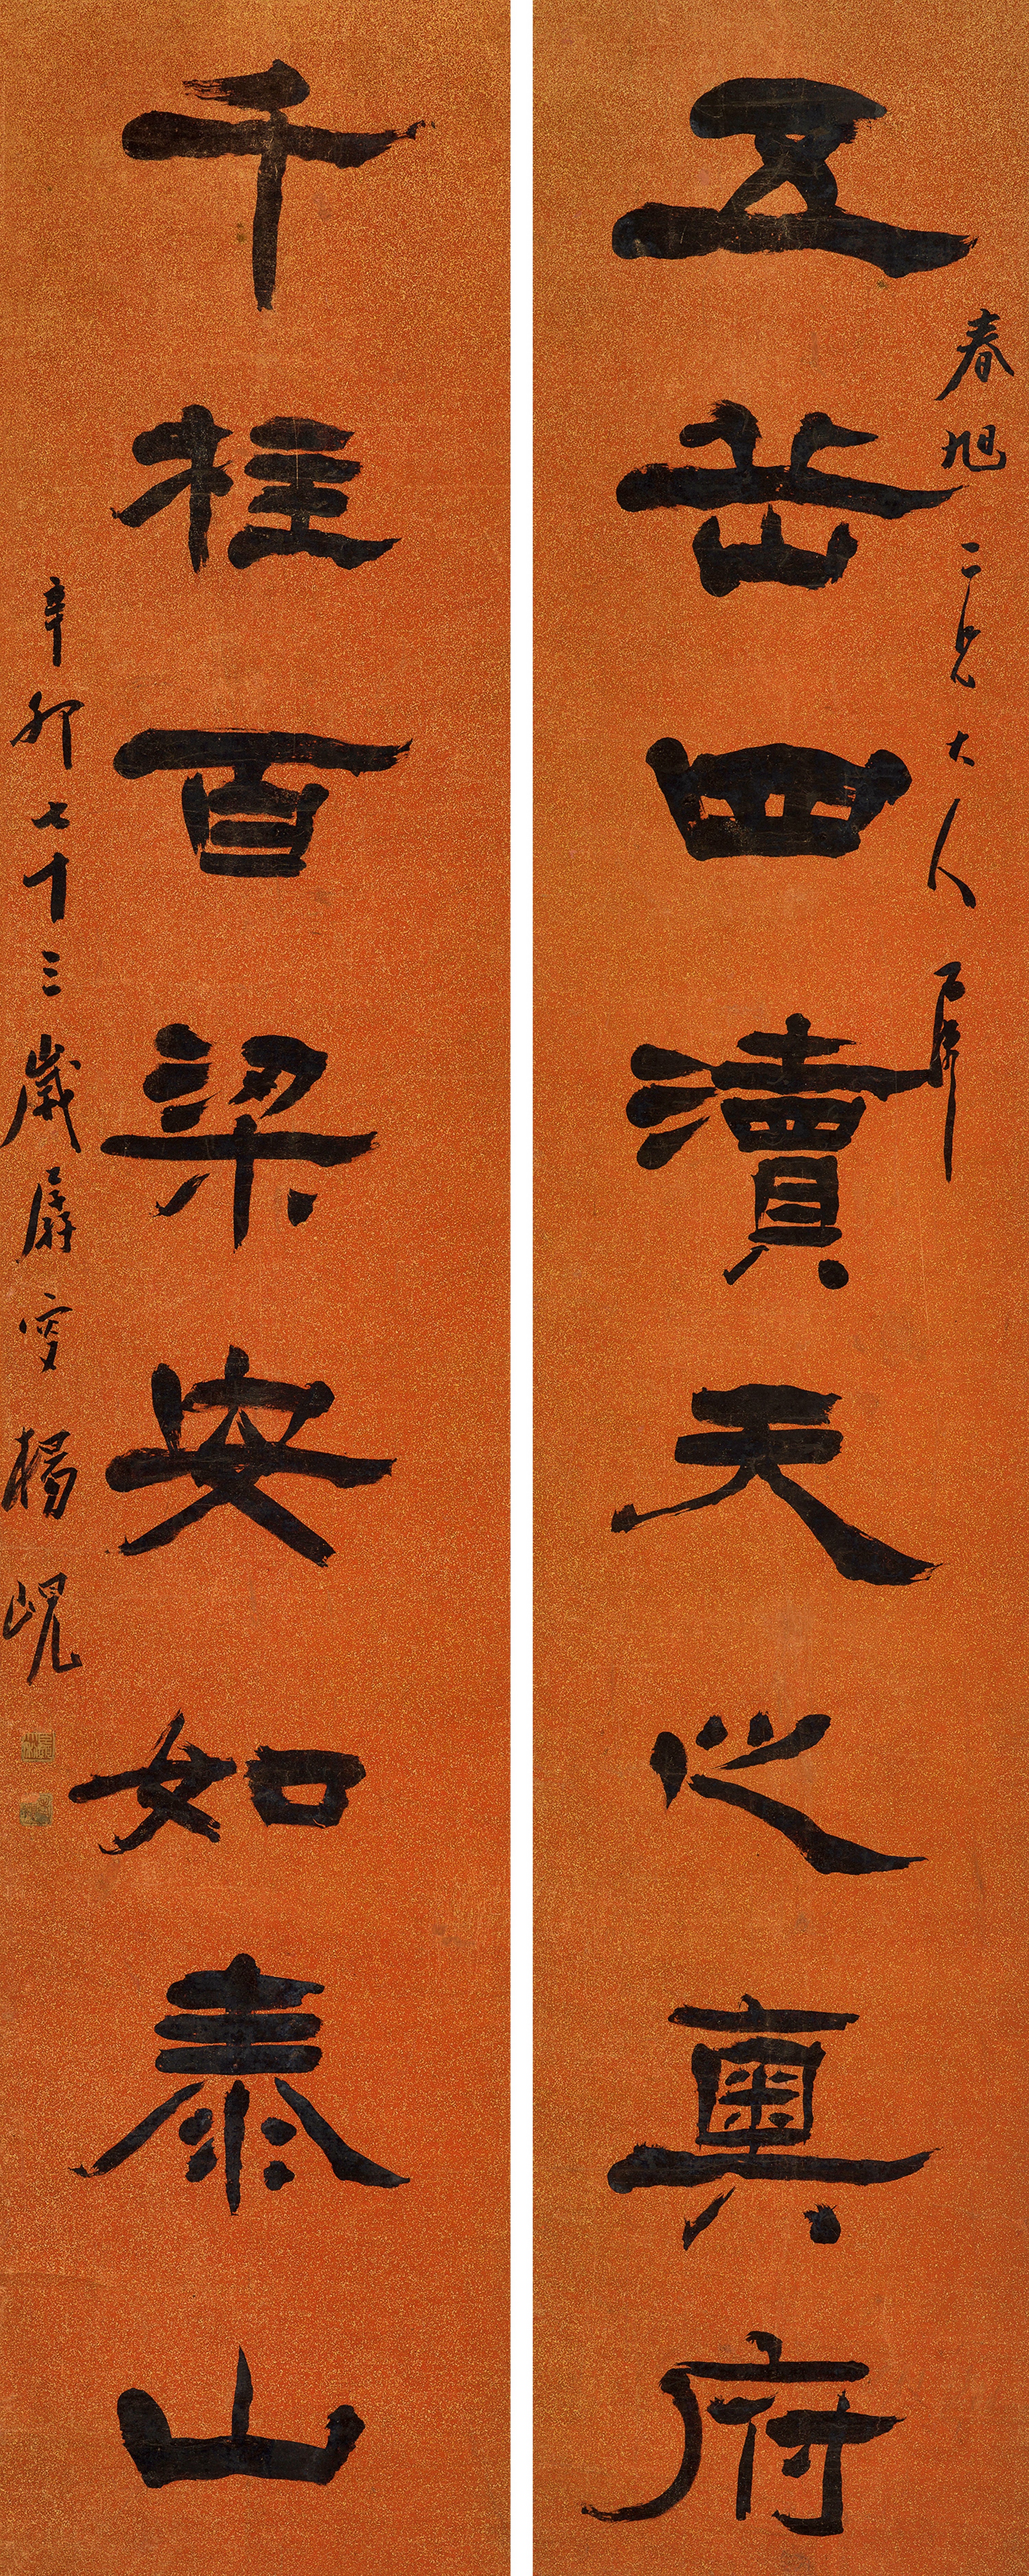 春旭二兄大人屬
五岳四瀆天之奧府
千柱百梁安如泰山
辛卯七十三歲孱叟楊峴